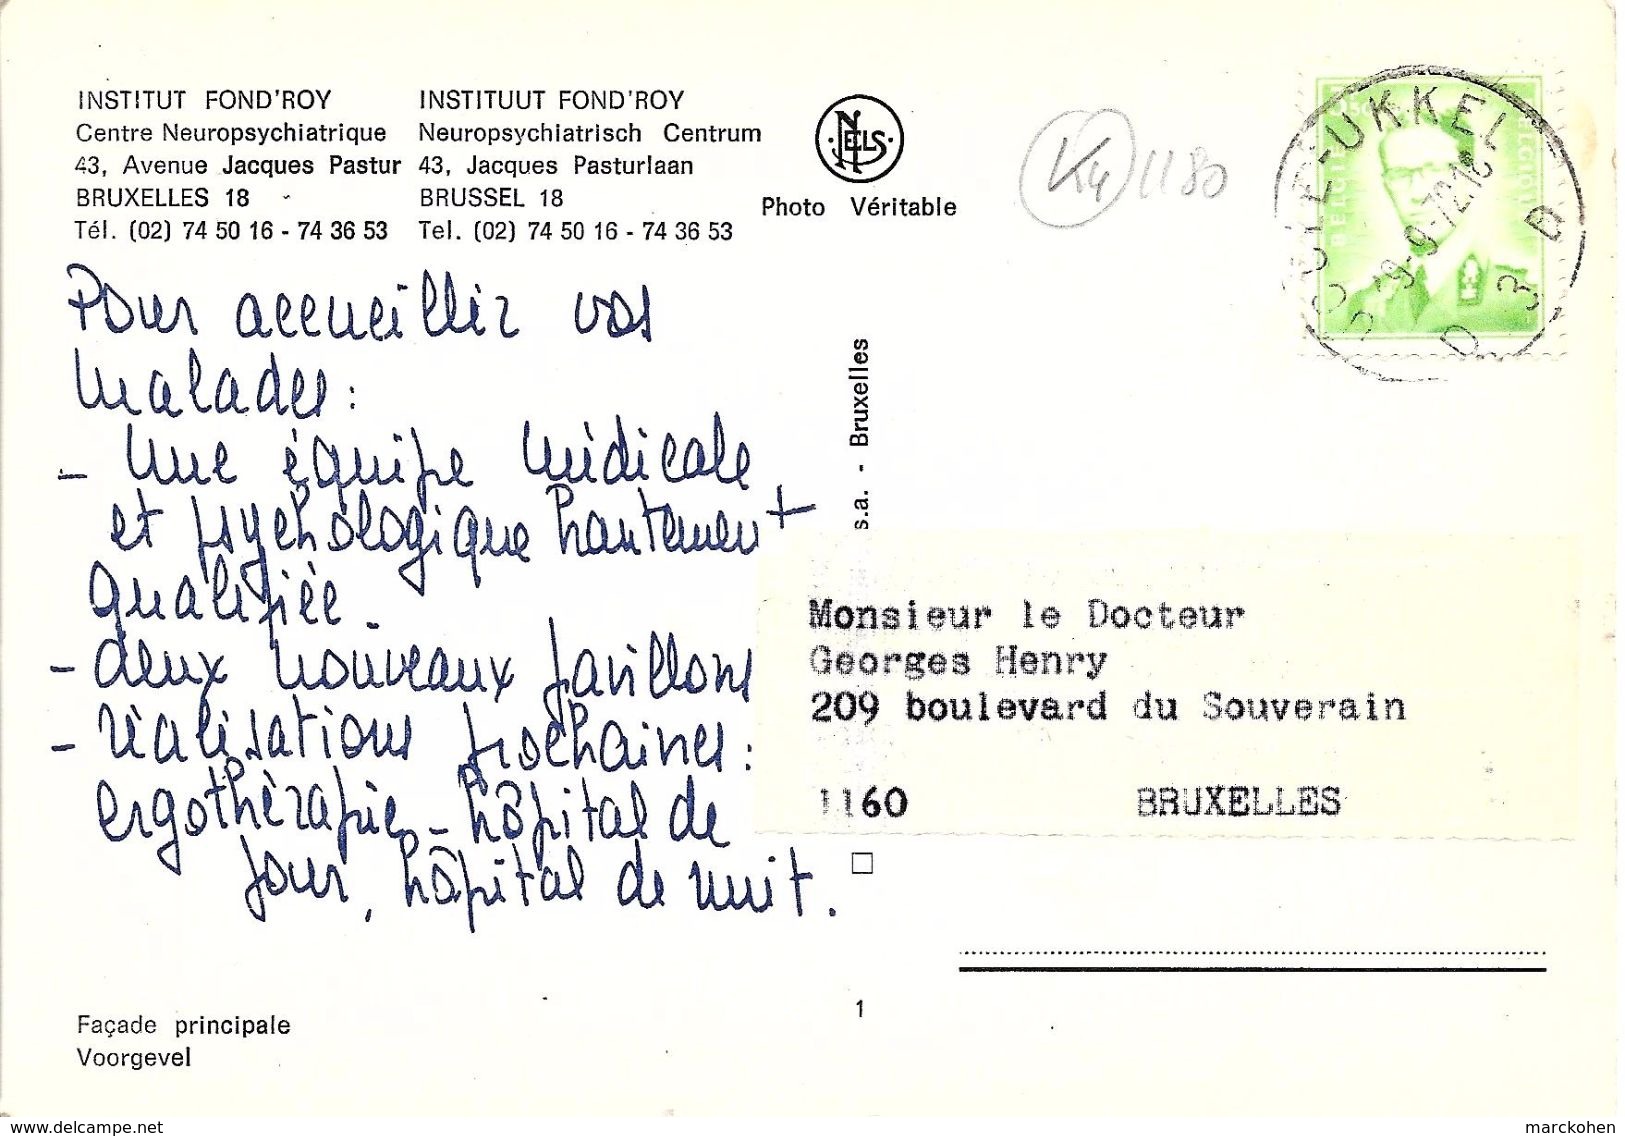 INSTITUT FOND'ROY
Centre Neuropsychiatrique
43, Avenue Jacques Pastur
BRUXELLES 18
Tél. (02) 74 50 16 - 74 36 53
INSTITUUT FOND'ROY
Neuropsychiatrisch Centrum
43, Jacques Pasturlaan
BRUSSEL 18
Tel. (02) 74 50 16 - 74 36 53
NELS
Photo Véritable
K4 1180
UCCLE-UKKEL
D 3 D
BELGIE BELGIQUE
Pour accueillir vos
malades :
- Une équipe médicale
et psychologique hautement
qualifiée.
- deux nouveaux pavillons
- réalisations prochaines :
ergothérapie - hôpital de
jour, hôpital de nuit.
s.a. - Bruxelles
Monsieur le Docteur
Georges Henry
209 boulevard du Souverain
1160 BRUXELLES
1
Façade principale
Voorgevel
www.delcampe.net
marckohen